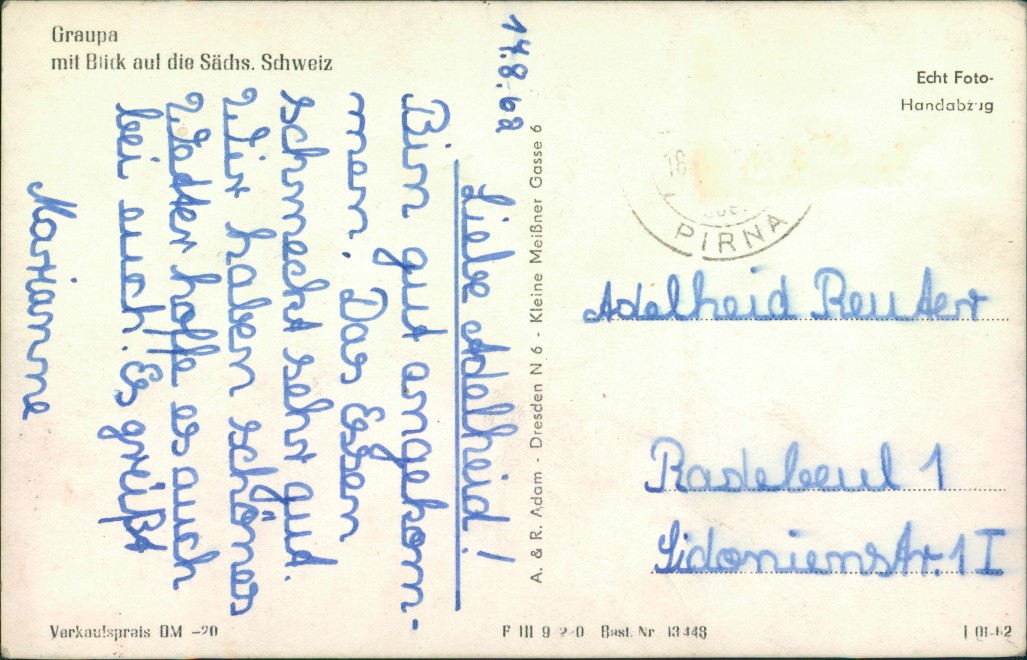 Graupa
mit Blick auf die Sächs. Schweiz
14.8.62
Liebe Adelheid!
Bin gut angekom-
men. Das Essen
schmeckt sehr gud.
Wir haben schönes
Wetter hoffe es auch
bei euch. Es grüßt
Marianne
A. & R. Adam - Dresden N 6 - Kleine Meißner Gasse 6
Echt Foto-
Handabzug
18
PIRNA
Adelheid Reuter
Radebeul 1
Sidonienstr. 1 I
Verkaufspreis DM -20
F III 9 2 0 Best. Nr 13448